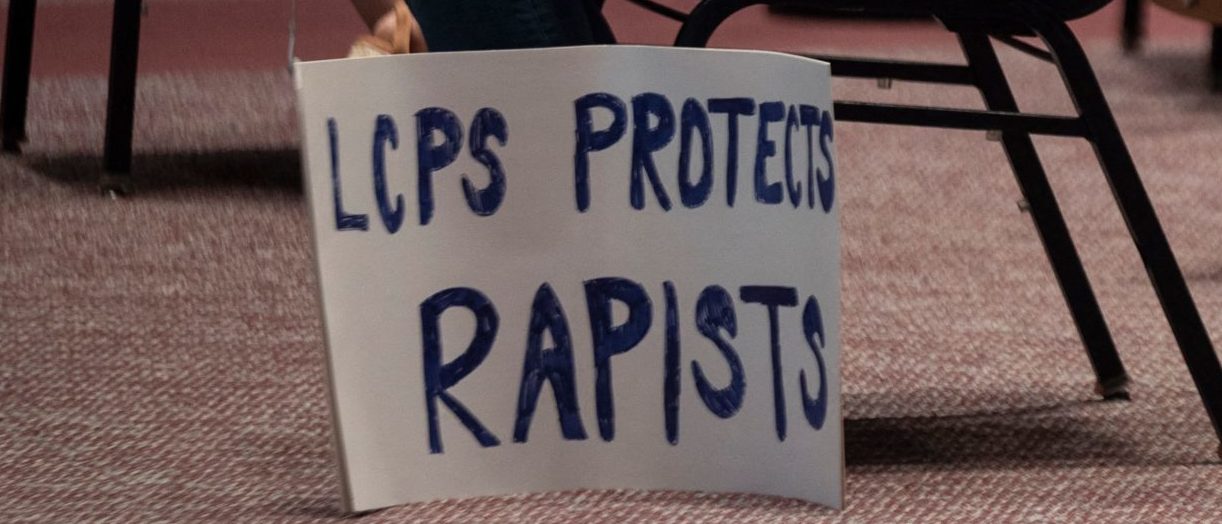 LCPS PROTECTS
RAPISTS